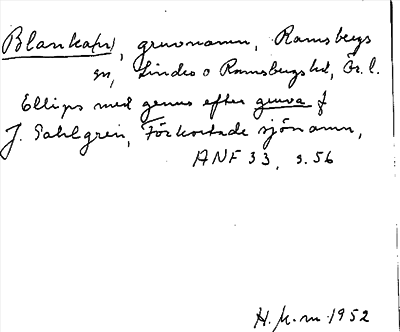 Blanka(n), gruvnamn, Ramsbergs
sn, Lindes o Ramsbergs hd, Ör. l.
Ellips med genus efter gruva f
J. Sahlgren, Förkortade sjönamn,
ANF 33, s. 56
H. K-m 1952